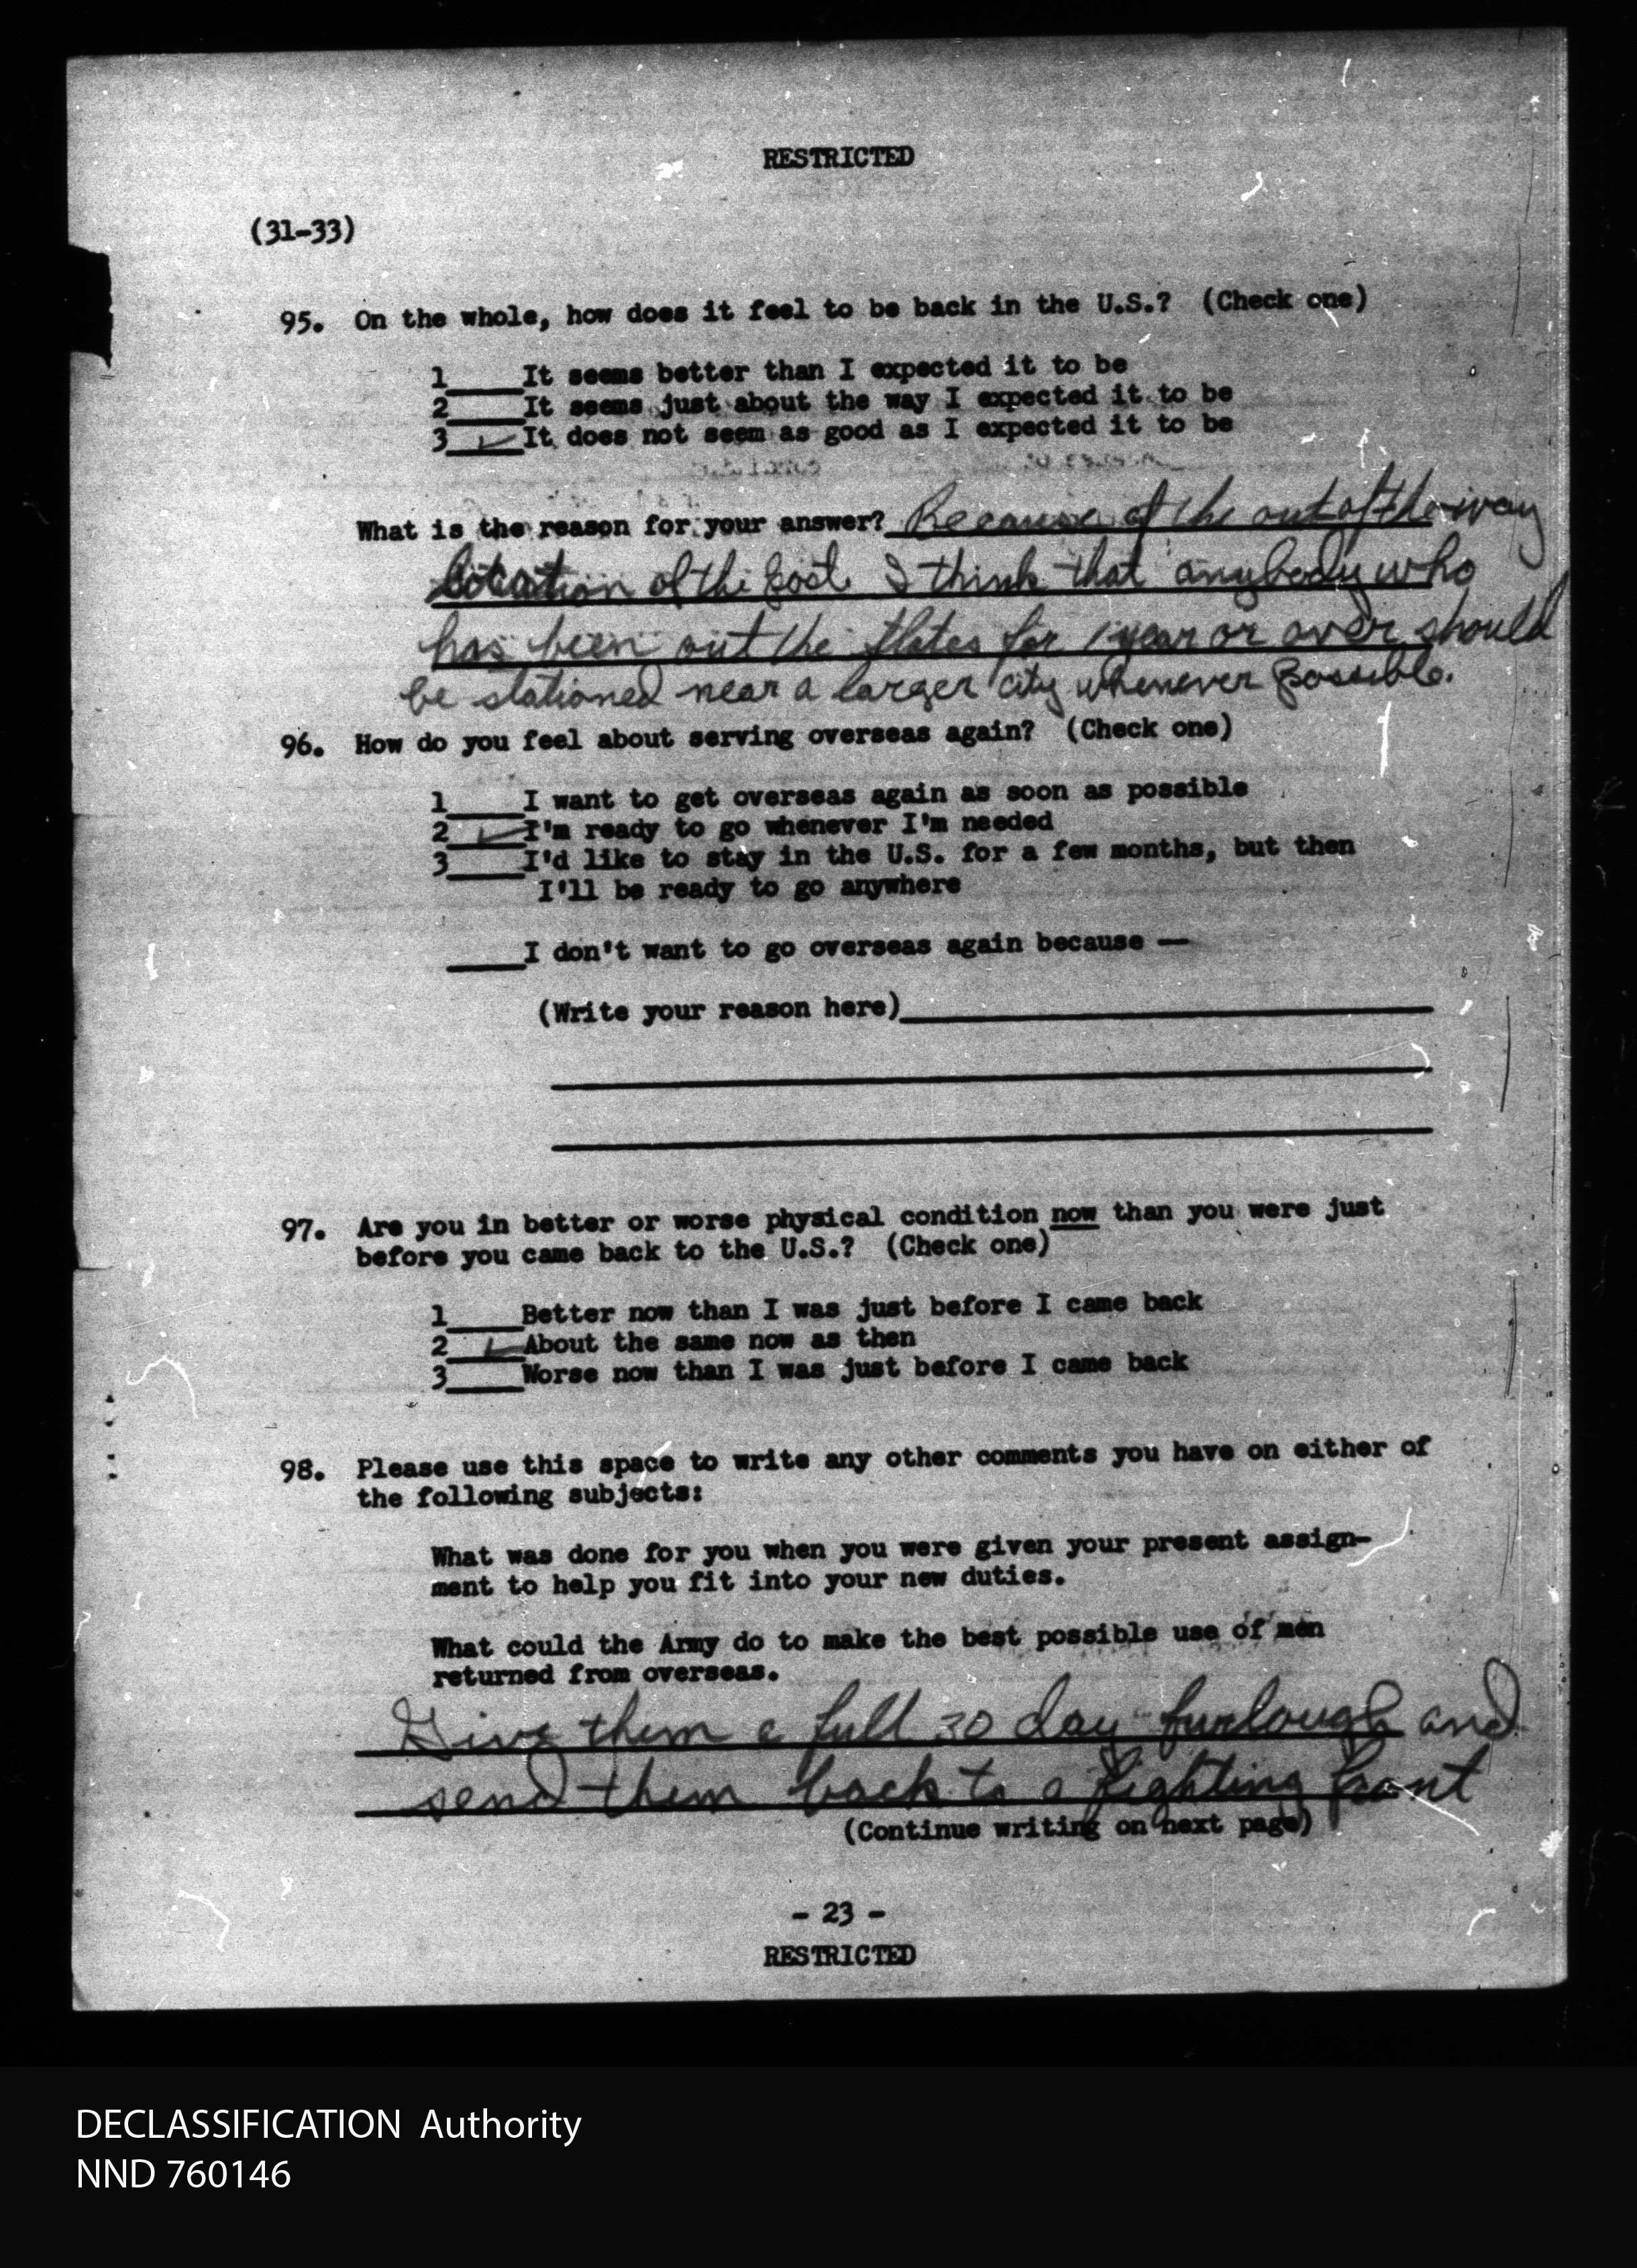 RESTRICTED
(31-33)
95. On the whole, how does it feel to be back in the U.S.? (Check one)
1____It seems better than I expected it to be
2____It seems just about the way I expected it to be
3_✓_It does not seem as good as I expected it to be
What is the reason for your answer? Because of the out of the way
location of the post. I think that anybody who
has been out the states for 1 year or over should
be stationed near a larger city whenever possible.
96. How do you feel about serving overseas again? (Check one)
1____I want to get overseas again as soon as possible
2_✓_I'm ready to go whenever I'm needed
3____I'd like to stay in the U.S. for a few months, but then
I'll be ready to go anywhere
____I don't want to go overseas again because —
(Write your reason here)____
97. Are you in better or worse physical condition now than you were just
before you came back to the U.S.? (Check one)
1____Better now than I was just before I came back
2_✓_About the same now as then
3____Worse now than I was just before I came back
98. Please use this space to write any other comments you have on either of
the following subjects:
What was done for you when you were given your present assign-
ment to help you fit into your new duties.
What could the Army do to make the best possible use of men
returned from overseas.
Give them a full 30 day furlough and
send them back to a fighting front
(Continue writing on next page)
- 23 -
RESTRICTED
DECLASSIFICATION Authority
NND 760146